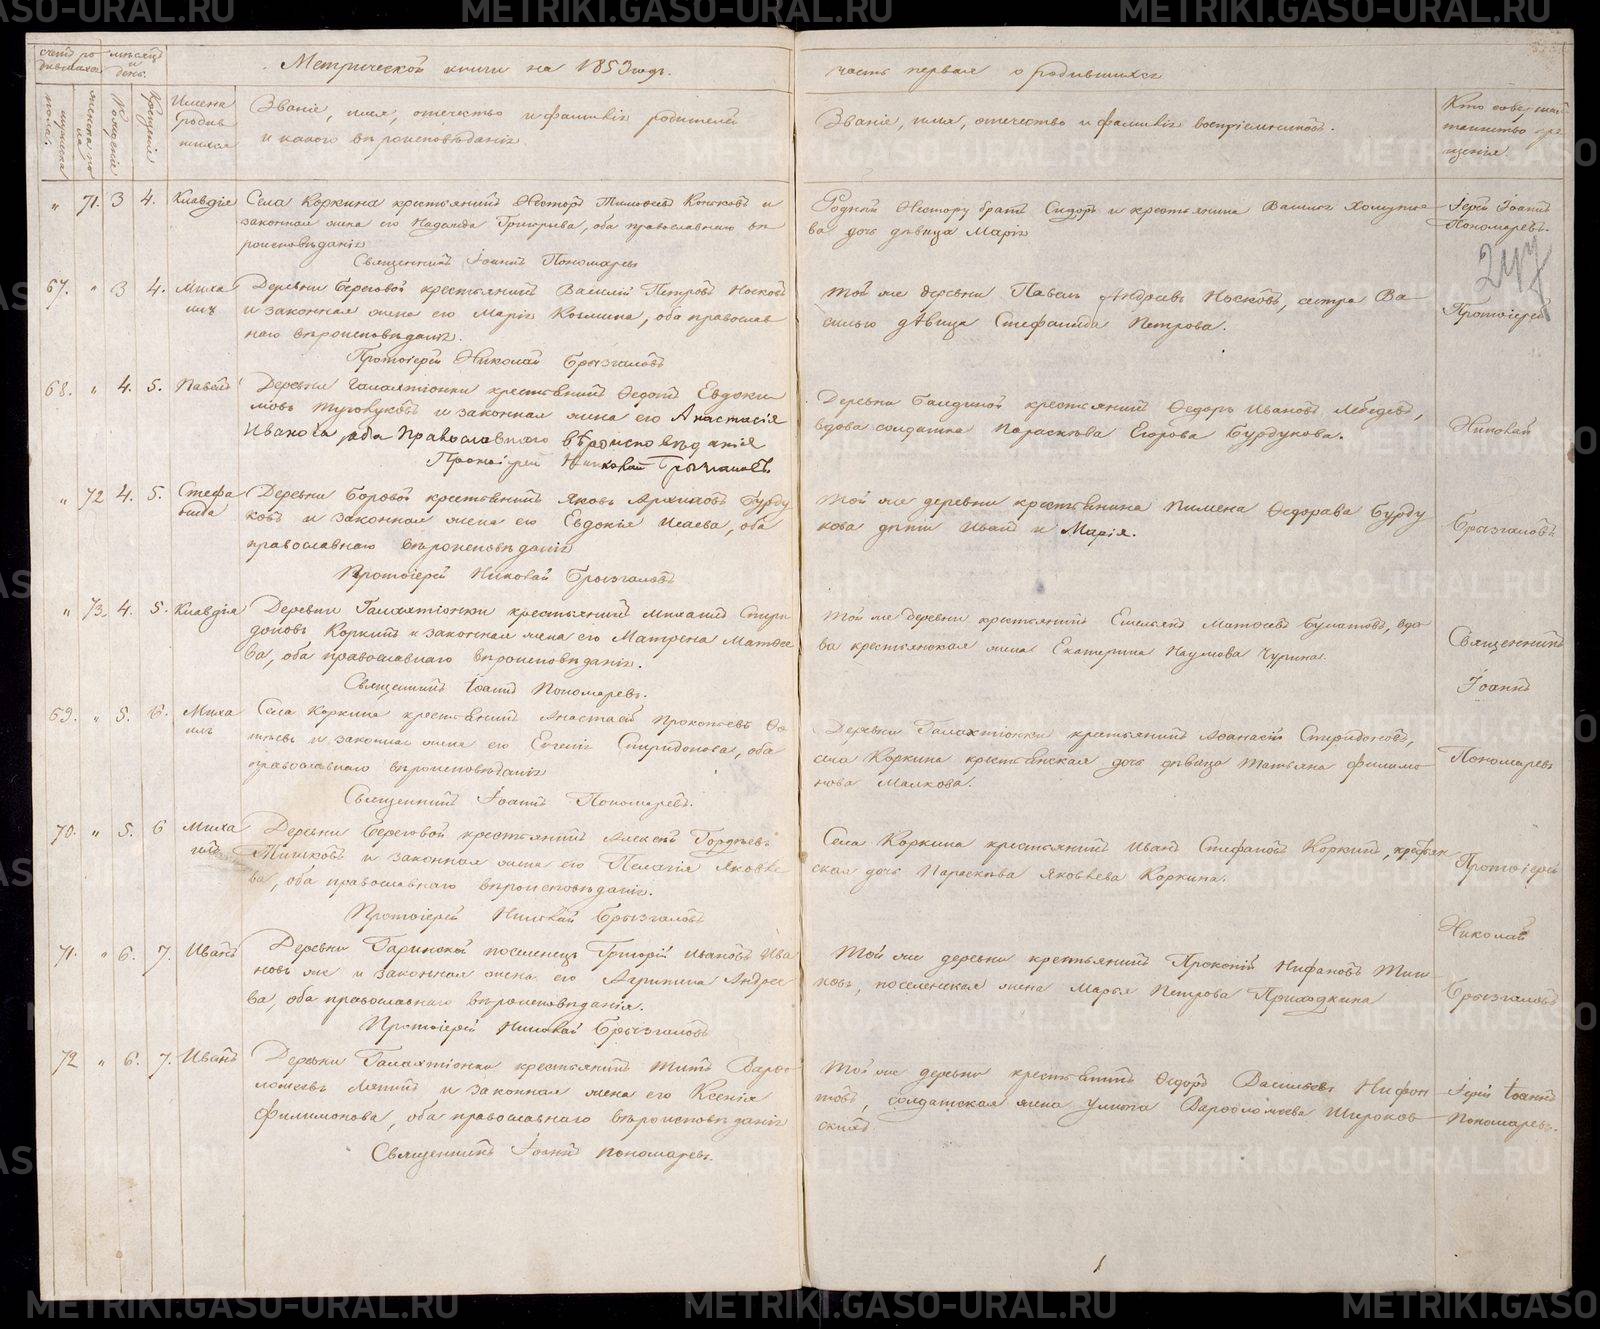 Метрической книги на 1853 годъ.
часть первая о родившихся
счетъ родившихся
мѣсяцъ и день.
мужеска пола.
женска пола
Рожденіе
Крещеніе
Имена родившихся
Званіе, имя, отечество и фамилія родителей
и какого вѣроисповѣданія
Званіе, имя, отечество и фамилія воспріемниковъ.
Кто совершалъ
таинство кре
щенія.
" 71. 3 4. Клавдія
Села Коркина крестьянинъ Несторъ Тимофеевъ Коньковъ и
законная жена его Надежда Григорьева, оба православнаго вѣ
роисповѣданія
Священникъ Іоаннъ Пономаревъ
Родный Нестору братъ Сидоръ и крестьянина Василья
ва дочь дѣвица Марія
Іерей Іоаннъ
Пономаревъ.
247
67. " 3 4. Миха
илъ
Деревни Береговой крестьянинъ Василій Петровъ Носковъ
и законная жена его Марія Козмина, оба православ
наго вѣроисповѣданія.
Протоіерей Николай Брызгаловъ
Той же деревни Павелъ Андреевъ Носковъ, сестра Ва
силью дѣвица Стефанида Петрова.
Протоіерей
68. " 4. 5. Павелъ
Деревни Галактіонки крестьянинъ Ѳедотъ Евдоки
мовъ и законная жена его Анастасія
Иванова, оба Православнаго вѣроисповѣданія
Протоіерей Николай Брызгаловъ
Деревни крестьянинъ Ѳедоръ Ивановъ Лебедевъ,
вдова солдатка Параскева Егорова Бурдукова.
Николай
" 72 4. 5. Стефа
нида
Деревни Боровой крестьянинъ Яковъ Архиповъ Бурду
ковъ и законная жена его Евдокія Исаева, оба
православнаго вѣроисповѣданія
Протоіерей Николай Брызгаловъ
Той же деревни крестьянина Пимена Ѳедорова Бурду
кова дѣти Иванъ и Марія.
Брызгаловъ
" 73. 4. 5. Клавдія
Деревни Галактіонки крестьянинъ Михаилъ Спири
доновъ Коркинъ и законная жена его Матрена Матвѣе
ва, оба православнаго вѣроисповѣданія.
Священникъ Іоаннъ Пономаревъ.
Той же деревни крестьянинъ Емельянъ Матвеевъ Булатовъ, вдо
ва крестьянская жена Екатерина Наумова Чурина.
Священникъ
Іоаннъ
69. " 5. 6. Миха
илъ
Села Коркина крестьянинъ Анастасій Прокопьевъ
и законная жена его Евгенія Спиридонова, оба
православнаго вѣроисповѣданія
Священникъ Іоаннъ Пономаревъ.
Деревни Галактіонки крестьянинъ Афанасій Спиридоновъ,
села Коркина крестьянская дочь дѣвица Татьяна Филимо
нова Малкова.
Пономаревъ
70. " 5. 6 Миха
илъ
Деревни Береговой крестьянинъ Алексѣй Гордѣевъ
Мишковъ и законная жена его Пелагія Яковле
ва, оба православнаго вѣроисповѣданія.
Протоіерей Николай Брызгаловъ
Села Коркина крестьянинъ Иванъ Стефановъ Коркинъ, крестьян
ская дочь Параскева Яковлева Коркина.
Протоіерей
Николай
71. " 6. 7. Иванъ
Деревни Таринской поселенецъ Григорій Ивановъ Ива
новъ же и законная жена его Агрипина Андрее
ва, оба православнаго вѣроисповѣданія.
Протоіерей Николай Брызгаловъ
Той же деревни крестьянинъ Прокопій Нифановъ Миш
ковъ, поселенская жена Марья Петрова Приходкина
Брызгаловъ
72 " 6. 7. Иванъ
Деревни Галактіонки крестьянинъ Титъ Варфо
ломеевъ и законная жена его Ксенія
Филимонова, оба православнаго вѣроисповѣданія
Священникъ Іоаннъ Пономаревъ.
Той же деревни крестьянинъ Ѳедоръ Васильевъ Нифон
товъ, солдатская жена Улита Варфоломеева Широков
скихъ
Іерей Іоаннъ
Пономаревъ.
METRIKI.GASO-URAL.RU